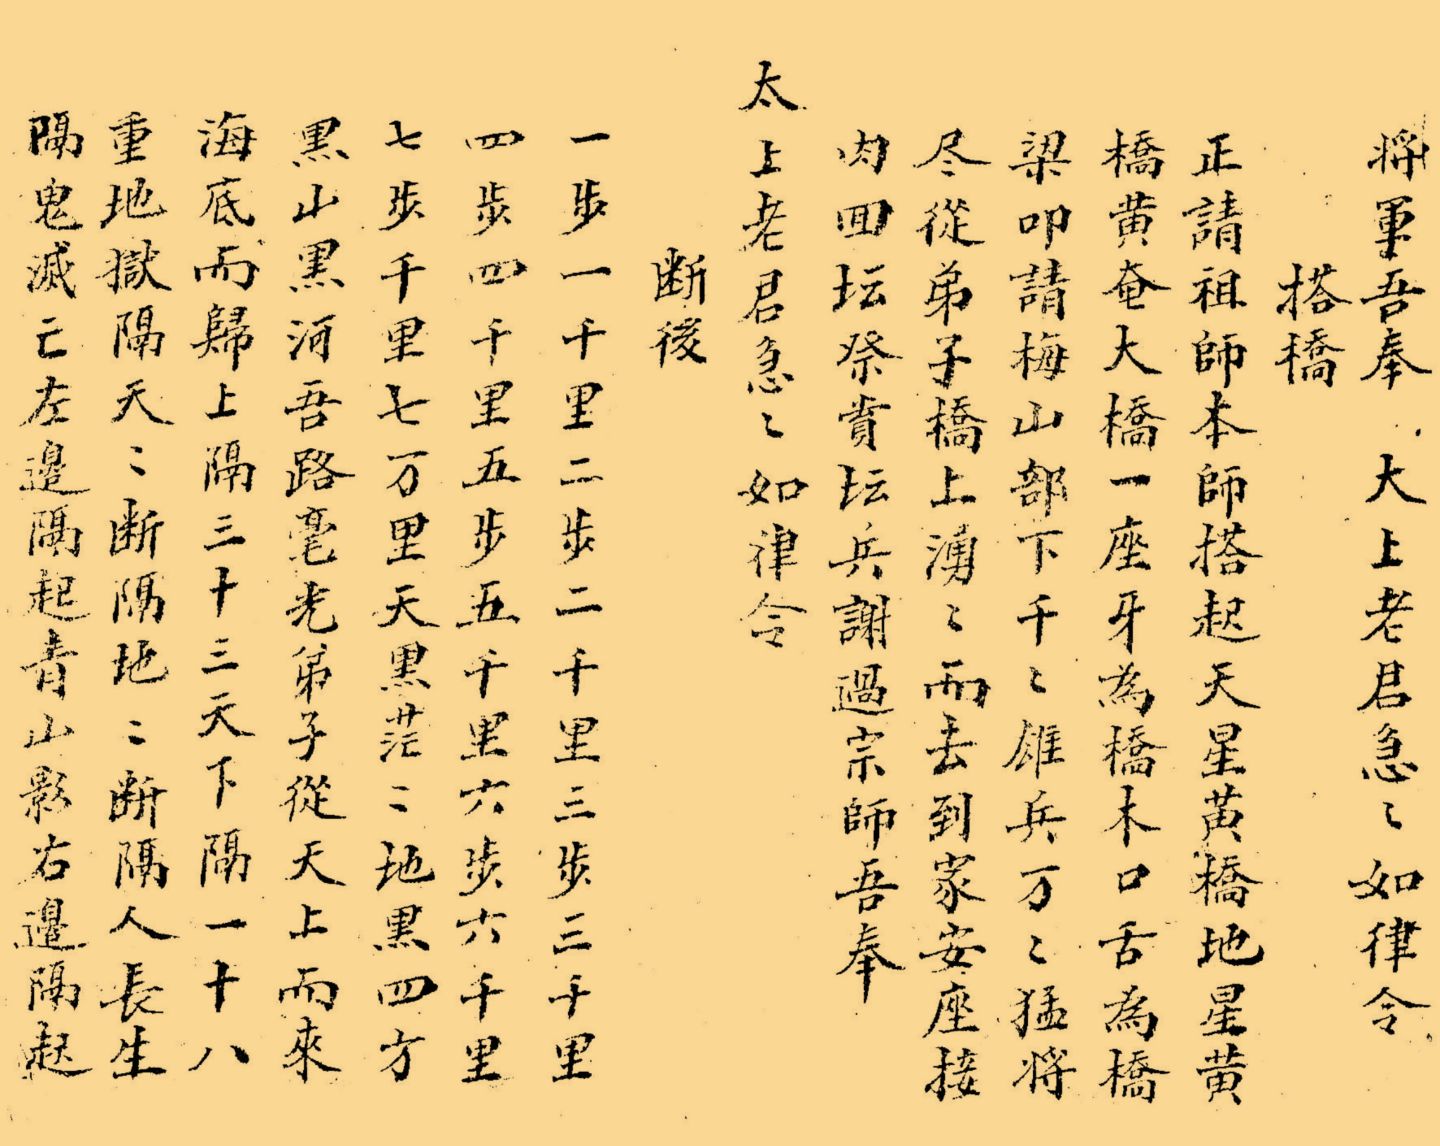 将軍吾奉 大上老君急〻如律令
搭橋
正請祖師本師搭起天星黄橋地星黄
橋黄奄大橋一座牙為橋木口舌為橋
梁叩請梅山部下千〻雄兵万〻猛将
尽從弟子橋上湧〻而去到家安座接
肉回坛祭賞坛兵謝過宗師吾奉
太上老君急〻如律令
断後
一步一千里二步二千里三步三千里
四步四千里五步五千里六步六千里
七步千里七万里天黒茫〻地黒四方
黒山黒河吾路毫光弟子從天上而來
海底而歸上隔三十三天下隔一十八
重地獄隔天〻断隔地〻断隔人長生
隔鬼滅亡左邊隔起青山影右邊隔起